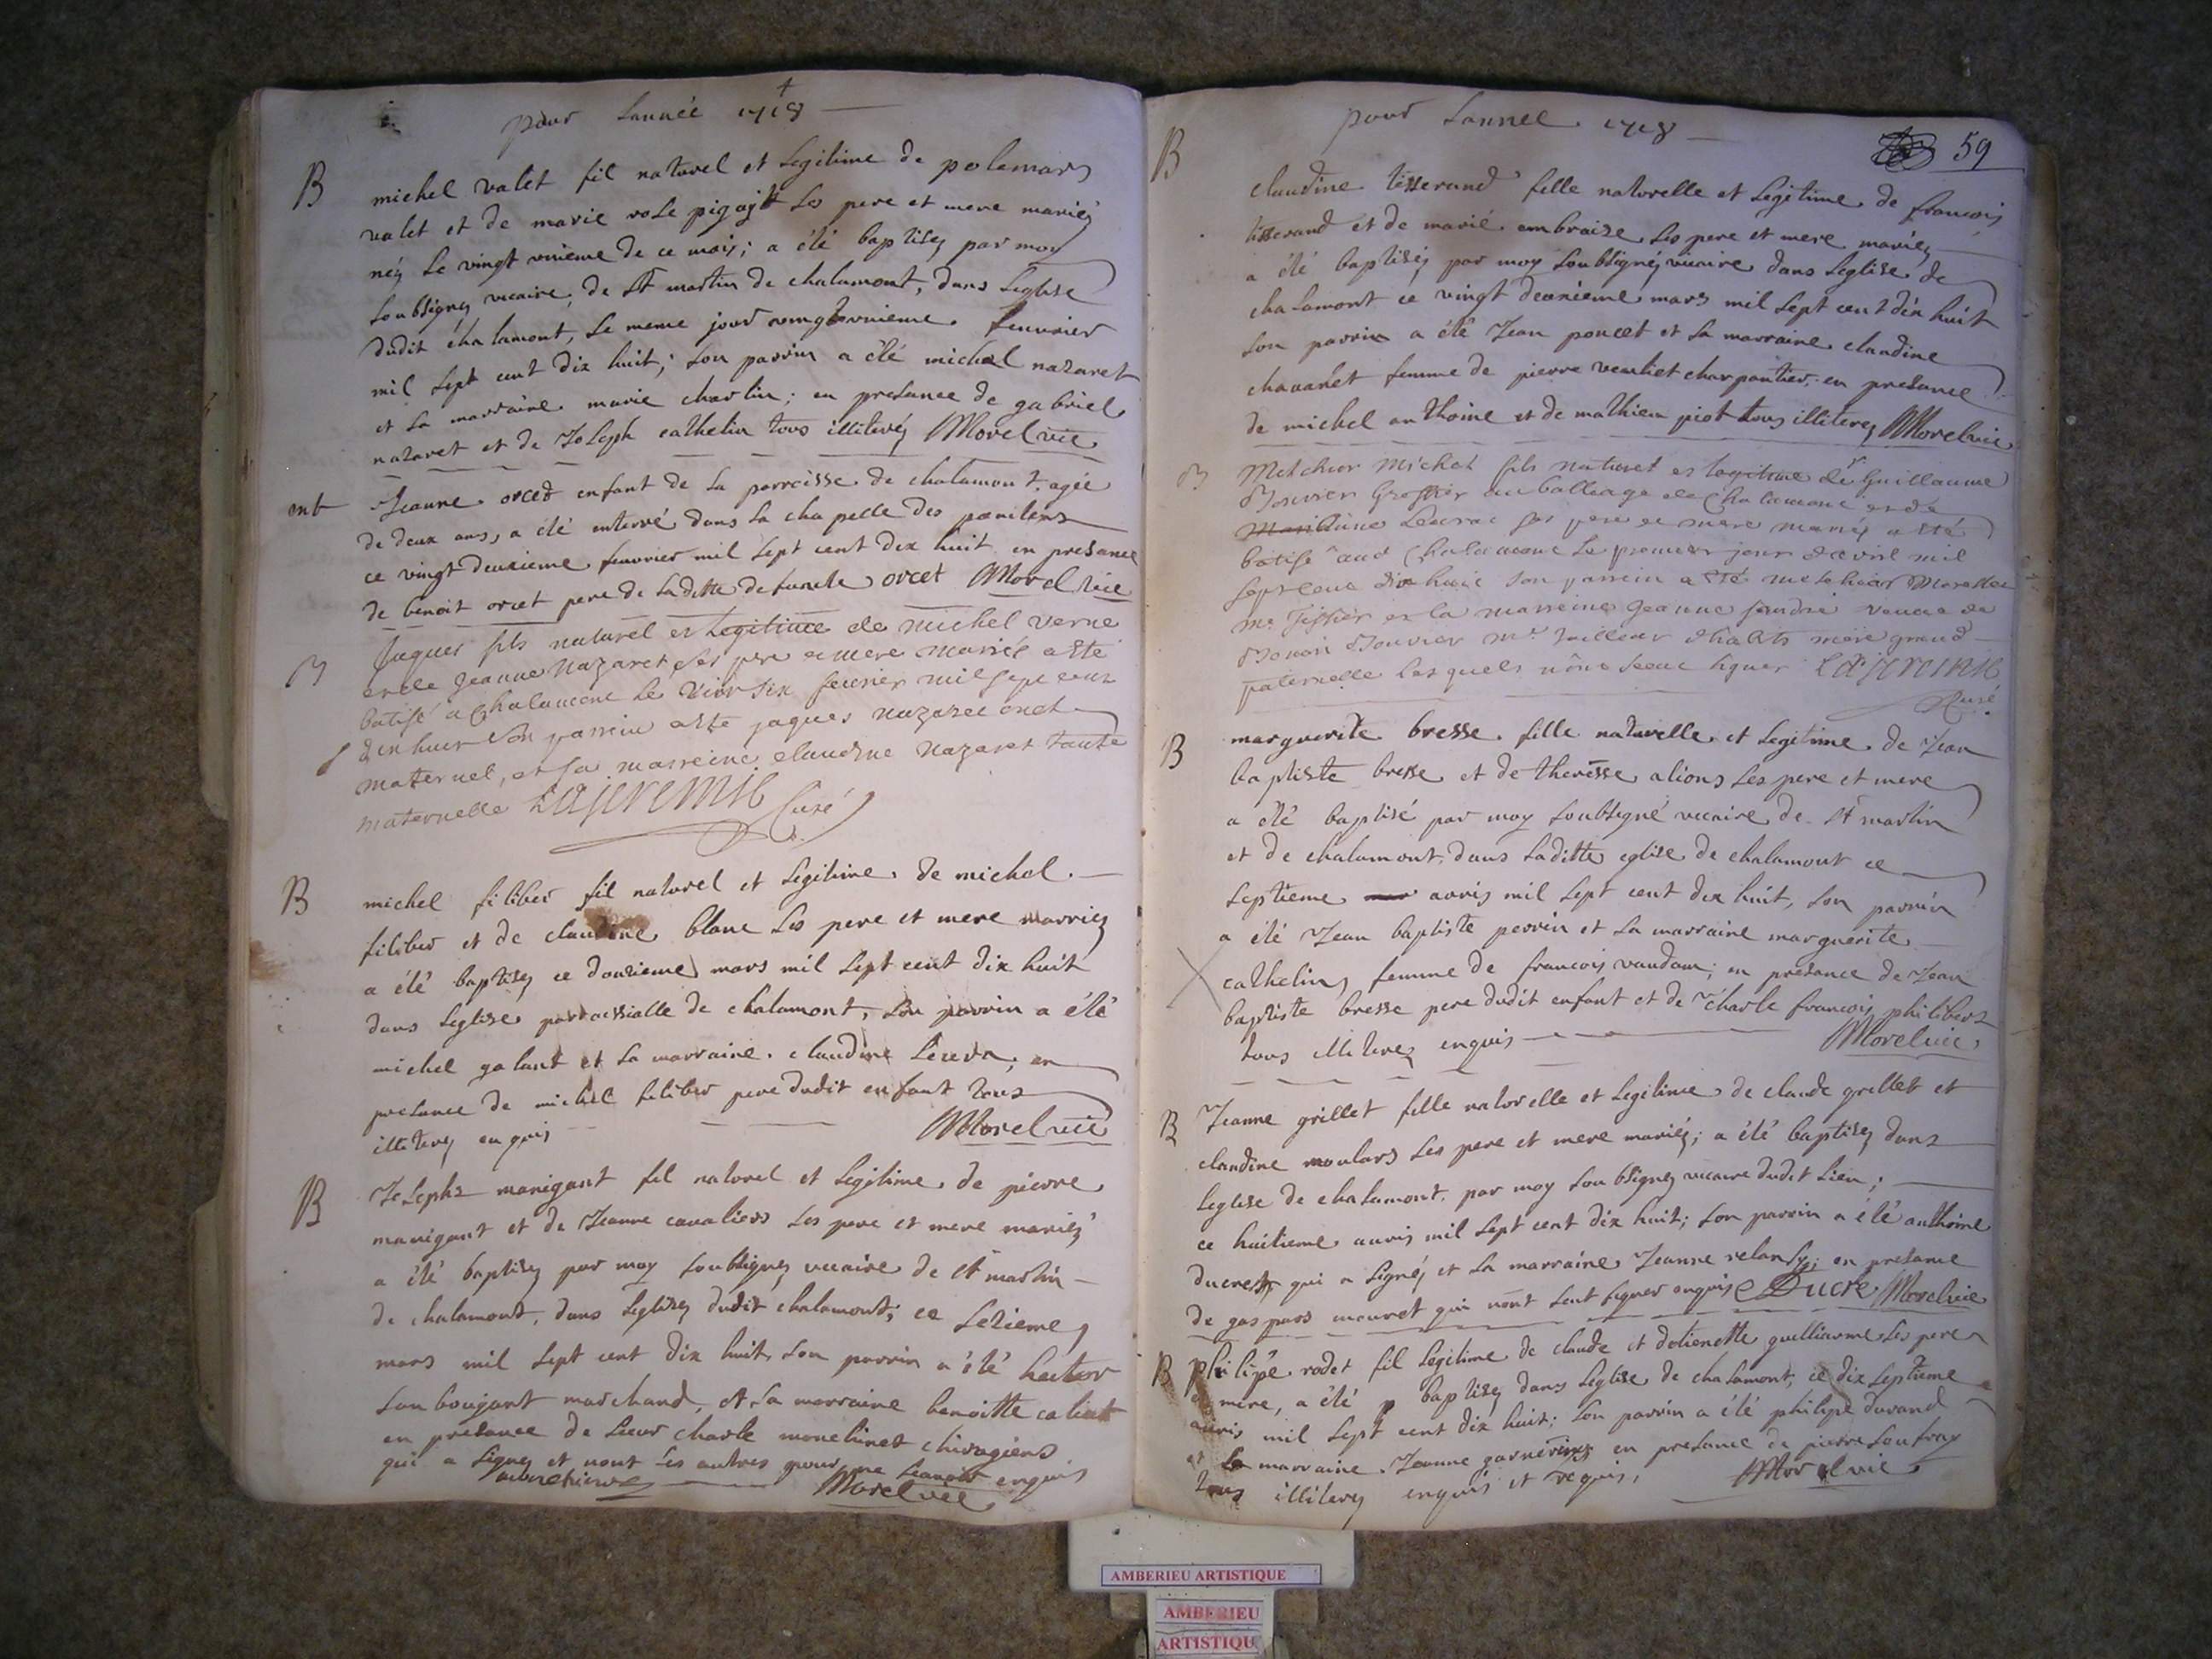 pour Lannée 1718
B
michel valet fil naturel et Legitime de polemars
valet et de marie rose pigajtt Ses pere et mere mariéz
néz le vingt unieme de ce mois; a été baptisez par moy
soubsignez vicaire, de St martin de chalamont, dans Leglise
dudit chalamont, le meme jour vingt unieme feuvrier
mil sept cent dix huit; son parrin a été michel nazaret
et sa marraine marie charlin; en presance de gabriel
nazaret et de Joseph cathelin tous illiterez Morel vic
ent Jeanne orcet enfant de la parroisse de chalamont, agée
de deux ans, a été enterré dans la chapelle des penitens
ce vingt deuxieme feuvrier mil sept cent dix huit en presance
de benoit orcet pere de laditte defuncte orcet Morel vic
B
Jaques fils naturel et legitime de michel verne
et de jeanne Nazaret ses pere et mere mariés a esté
batisé a Chalamont le vint six feurier mil sept cent
dix huit Son parrein a esté jaques nazaret oncle
maternel, et sa marreine claudine Nazaret tante
maternelle Lajeremie Curé
B
michel filiber fil naturel et Legitime de michel
filiber et de claudine blanc Ses pere et mere marriez
a été baptisez ce douzieme mars mil sept cent dix huit
dans Leglise parroissialle de chalamont, son parrin a été
michel galant et sa marraine claudine en
presance de michel filiber pere dudit enfant tous
illiterez enquis Morel vic
B
Josephz manigant fil naturel et Legitime de pierre
manigant et de Jeanne cavaliers Ses pere et mere mariéz
a été baptisez par moy soubsignez vicaire de St martin
de chalamont, dans Leglisez dudit chalamont; ce sezieme
mars mil sept cent dix huit, son parrin a été hector
sanbougant marchand, et sa marraine benoitte
en presance de sieur charle monchinet chirugiens
qui a signez et nont les autres pour ne scavoir enquis
Morel vic
pour Lannee 1718
59
B
claudine tisserand fille naturelle et Legitime de francois
tisserand et de marie ambroize Ses pere et mere mariez
a été baptiséz par moy soubsignéz vicaire dans Leglise de
chalamont ce vingt deuxieme mars mil sept cent dix huit
son parrin a été Jean poncet et sa marraine claudine
chavanet femme de pierre charpantier; en presance
de michel anthoine et de mathieu piot tous illiterez Morel vic
B
Melchior Michel fils naturel et legitime de Sr Guillaume
Bouvier Greffier au balliage de Chalamont et de
ses pere et mere mariés a esté
batisé aud Chalamont le premier jour d'avril mil
sept cent dix huit son parrein a esté melchior
me Tissier et la marreine Jeanne veuve de
Benoit Bouvier me tailleur d'habits mere grand
paternelle lesquels n'ont sceut signer Lajeremie
Curé
B
marguerite bresse fille naturelle et Legitime de Jean
baptiste bresse et de theresse alions Ses pere et mere
a été baptisé par moy soubsigné vicaire de St martin
et de chalamont, dans laditte eglise de chalamont ce
septieme avris mil sept cent dix huit, son parrin
a été Jean baptiste perrin et sa marraine marguerite
cathelin, femme de francois vaudan; en presance de Jean
baptiste bresse pere dudit enfant et de charle francois philibers
tous illiterez enquis Morel vic
B
Jeanne grillet fille naturelle et Legitime de claude grillet et
claudine moulars Ses pere et mere mariéz; a été baptisez dans
Leglise de chalamont, par moy soubsignez vicaire dudit lieu;
ce huitieme avris mil sept cent dix huit; son parrin a été anthoine
ducrest qui a signéz et sa marraine Jeanne en presance
de gaspars mouret qui nont sceut signer enquis Ducre Morel vic
B
philipe rodet fil Legitime de claude et detienette guilliaume Ses pere
et mere, a été baptisez dans Leglise de chalamont, ce dix septieme
avris mil sept cent dix huit; son parrin a été philipe durand
et la marraine Jeanne en presance de pierre
tous illiterez enquis et requis, Morel vic
AMBERIEU ARTISTIQUE
AMBERIEU
ARTISTIQU